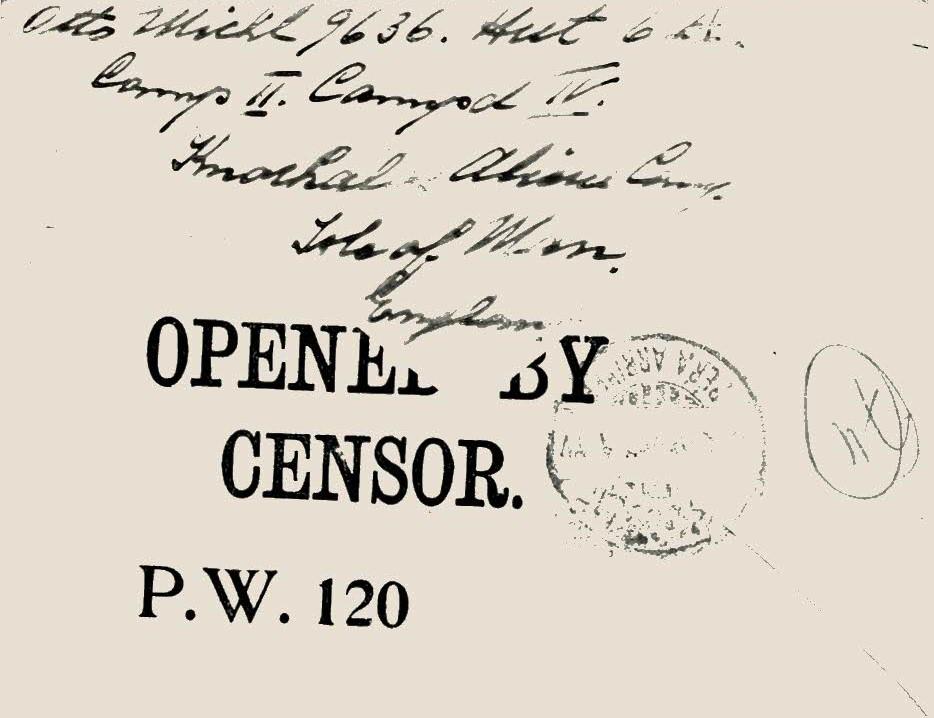 Otto Michl 9636. Hut 6
Camp II. Campd IV.
Knockal Aliens Camp.
Isle of Man.
England
OPENED BY
CENSOR.
P.W. 120